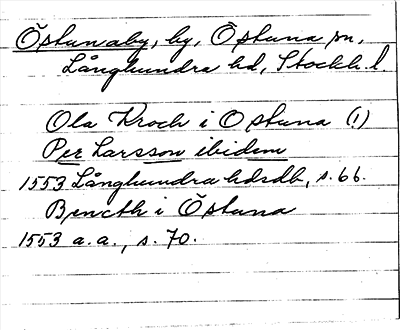 Östunaby, by, Östuna sn,
Långhundra hd, Stockh. l.
Ola Kroch i Ostuna (1)
Per Larsson ibidem
1553 Långhundra hdsdb, s. 66.
Bencth i Östuna
1553 a. a., s. 70.